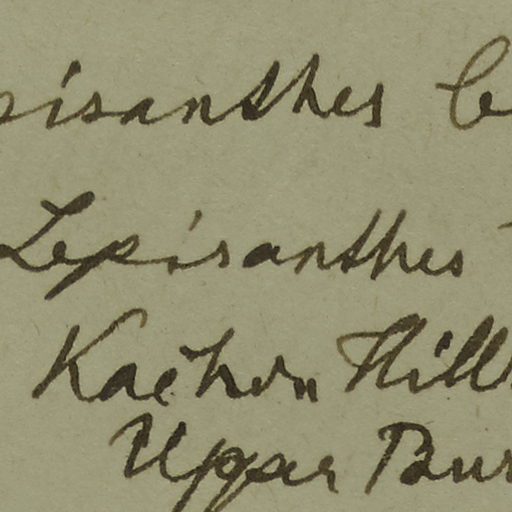 pisanthes B
Lepisanthes
Kachin Hills
Upper Bur